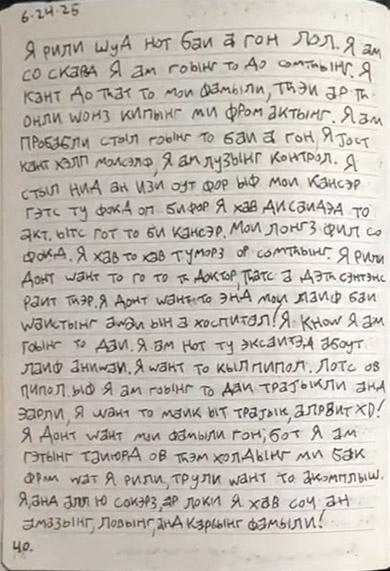 6-24-25
Я рили шуд нот баи а гон лол. Я ам
со скава Я ам гоынг то до сомтhынг. Я
кант до тhат то мои фамыли, тhэи ар тh
онли wонз кипынг ми фром актынг. Я ам
пробабли стыл гоынг то баи а гон, Я јост
кант хэлп моисэлф, Я ам лузынг контрол. Я
стыл нид ан изи оут фор ыф мои кансэр
гэтс ту фокд оп бифор Я хав дисаидэд то
акт. ытс гот то би кансэр. Мои лонгз фил со
фокд. Я хав то хав туморз ор сомтhынг. Я рили
донт wант то го то тh доктор, тhатс а дэтh сэнтэнс
раит тhэр. Я донт wант то энд мои лаиф баи
wаистынг аwаи ын а хоспитал! Я know Я ам
гоынг то даи. Я ам нот ту эксаитэд абоут
лаиф аниwаи. Я wант то кыл пипол. Лотс ов
пипол. ыф Я ам гоынг то даи трајыкли анд
эарли, Я wант то маик ыт трајык, алраит XD!
Я донт wант мои фамыли гон, бот Я ам
гэтынг таиюрд ов тhэм холдынг ми бак
фром wат Я рили, трули wант то акомплыш.
Я, анд алл ю сокэрз, ар локи Я хав соч ан
амазынг, ловынг, анд карынг фамыли!
40.